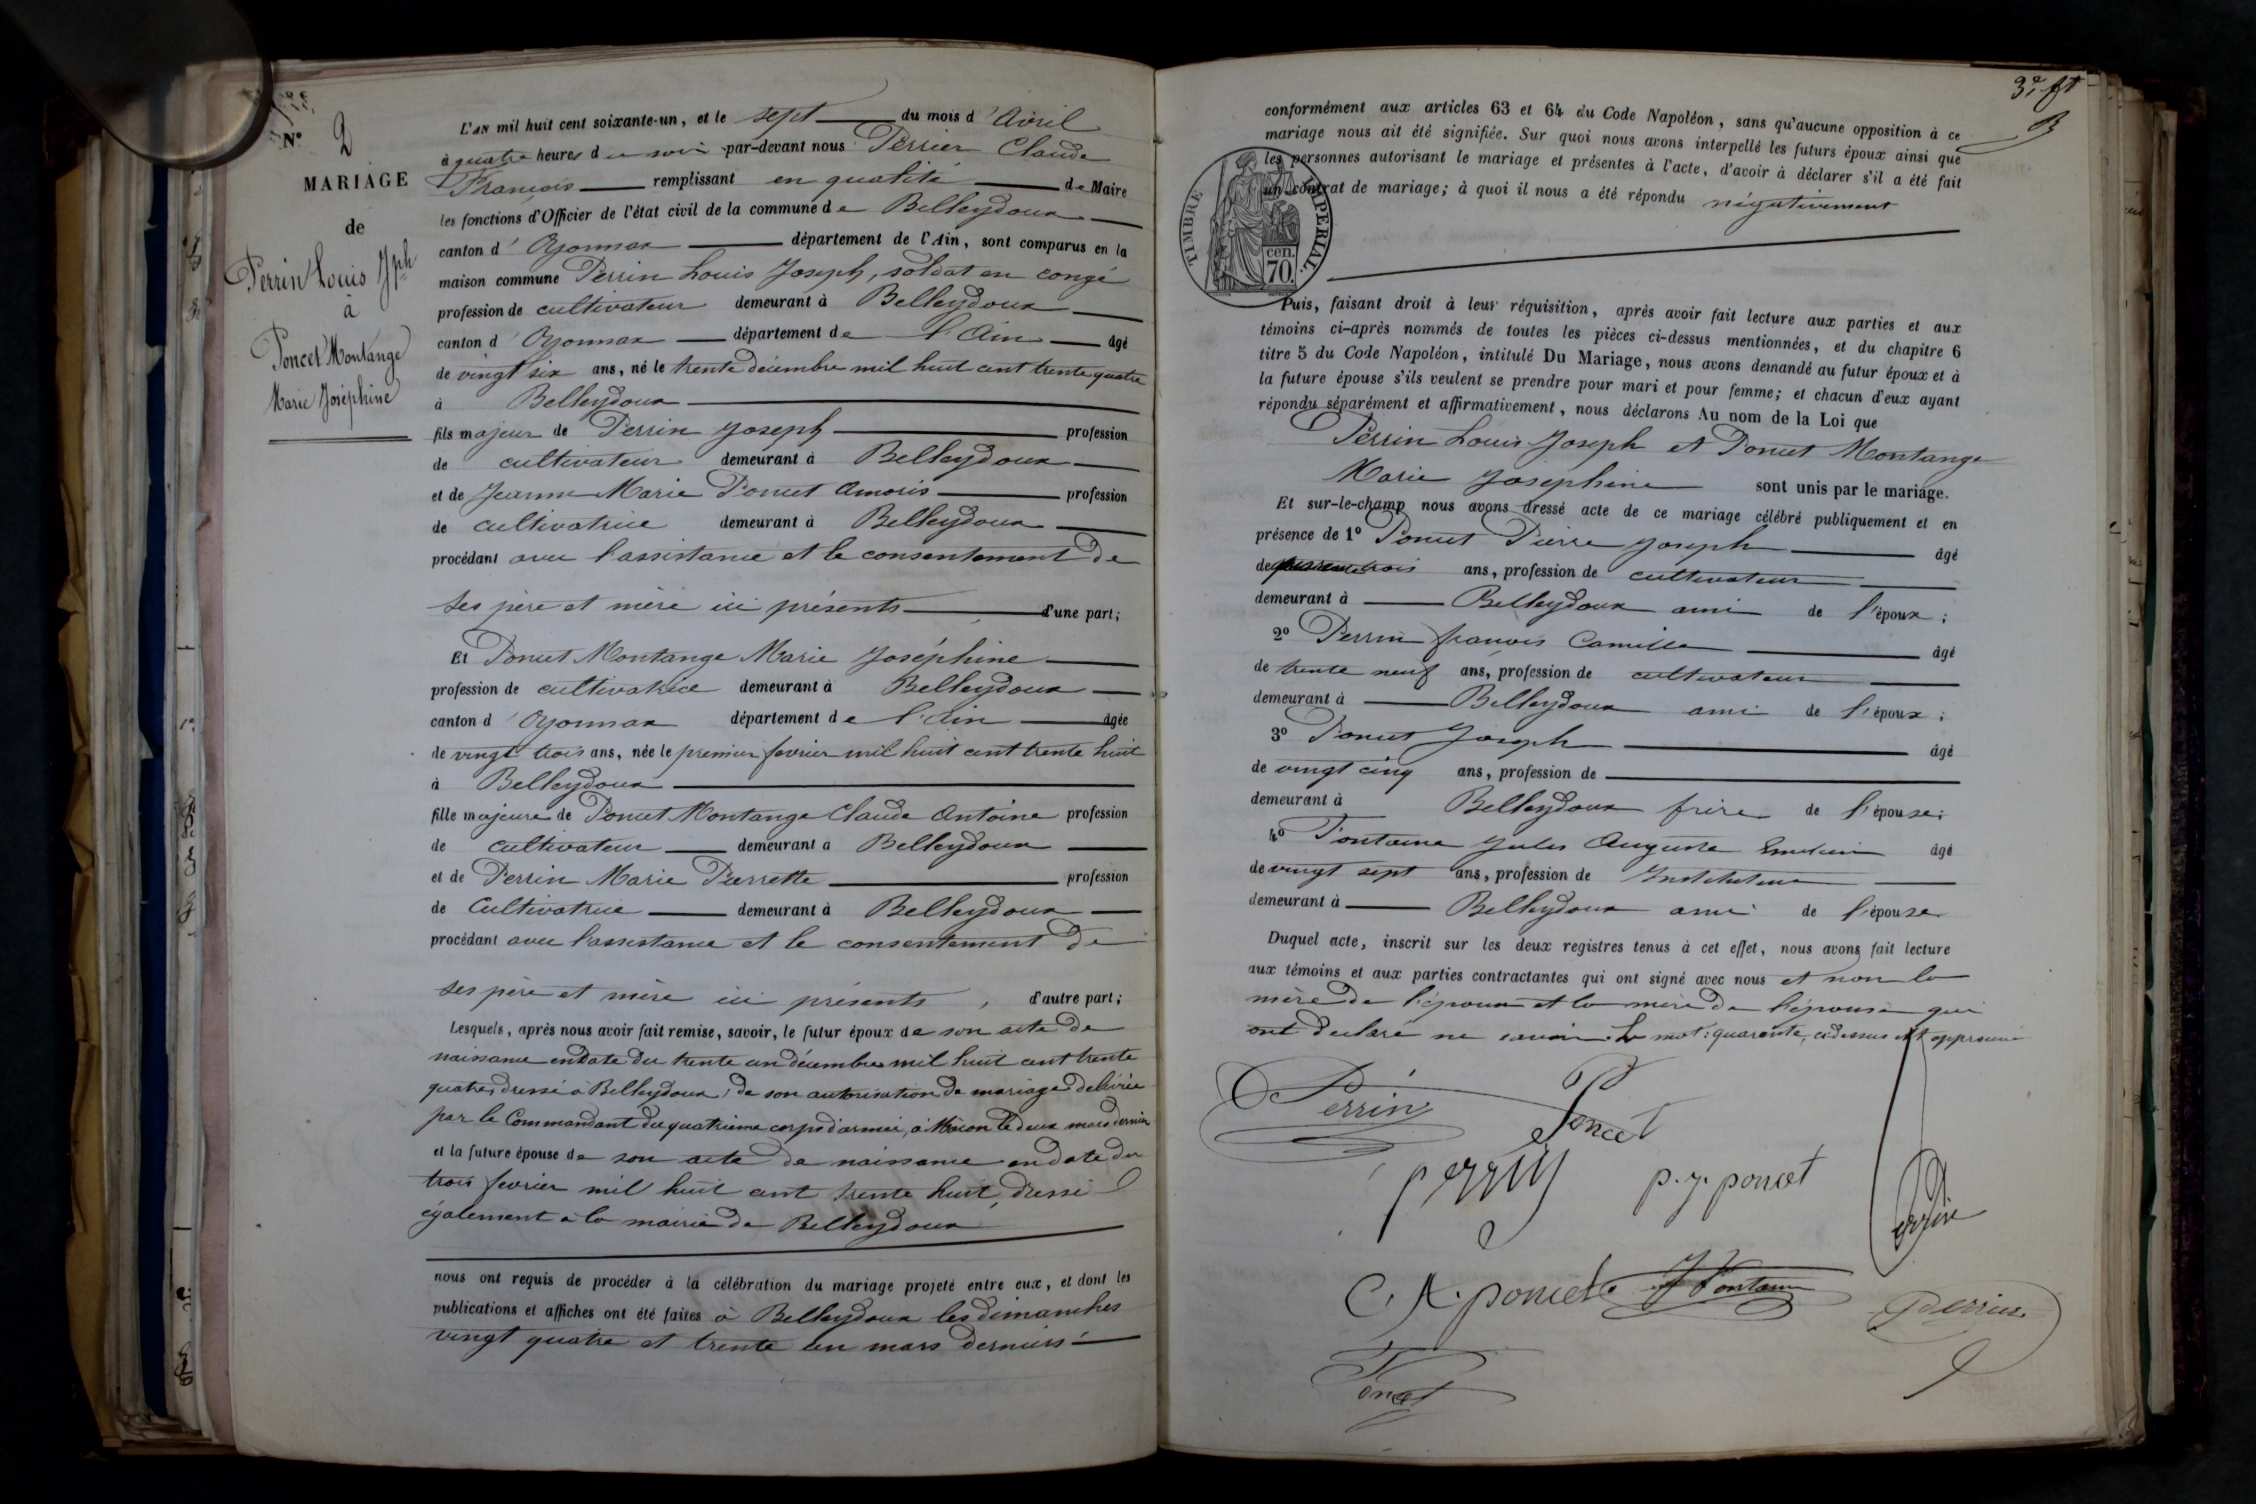 N° 2
MARIAGE
de
Perrin Louis Jph
à
Poncet Montange
Marie Joséphine
L'AN mil huit cent soixante-un, et le sept du mois d'Avril
à quatre heures du soir par-devant nous Perrier Claude
François remplissant en qualité de Maire
les fonctions d'Officier de l'état civil de la commune de Belleydoux
canton d'Oyonnax département de l'Ain, sont comparus en la
maison commune Perrin Louis Joseph, soldat en congé
profession de cultivateur demeurant à Belleydoux
canton d'Oyonnax département de l'Ain âgé
de vingt six ans, né le trente décembre mil huit cent trente quatre
à Belleydoux
fils majeur de Perrin Joseph profession
de cultivateur demeurant à Belleydoux
et de Jeanne Marie Poncet Amoris profession
de cultivatrice demeurant à Belleydoux
procédant avec l'assistance et le consentement de
ses père et mère ici présents d'une part;
Et Poncet Montange Marie Joséphine
profession de cultivatrice demeurant à Belleydoux
canton d'Oyonnax département de l'Ain âgée
de vingt trois ans, née le premier fevrier mil huit cent trente huit
à Belleydoux
fille majeure de Poncet Montange Claude Antoine profession
de cultivateur demeurant à Belleydoux
et de Perrin Marie Pierrette profession
de Cultivatrice demeurant à Belleydoux
procédant avec l'assistance et le consentement de
ses père et mère ici présents, d'autre part;
Lesquels, après nous avoir fait remise, savoir, le futur époux de son acte de
naissance en date du trente un décembre mil huit cent trente
quatre, dressé à Belleydoux; de son autorisation de mariage délivrée
par le Commandant du quatrième corps d'armée, à Mâcon le deux mars dernier
et la future épouse de son acte de naissance en date du
trois fevrier mil huit cent trente huit, dressé
également à la mairie de Belleydoux
nous ont requis de procéder à la célébration du mariage projeté entre eux, et dont les
publications et affiches ont été faites à Belleydoux les dimanches
vingt quatre et trente un mars derniers
3e ft
conformément aux articles 63 et 64 du Code Napoléon, sans qu'aucune opposition à ce
mariage nous ait été signifiée. Sur quoi nous avons interpellé les futurs époux ainsi que
les personnes autorisant le mariage et présentes à l'acte, d'avoir à déclarer s'il a été fait
un contrat de mariage; à quoi il nous a été répondu négativement
TIMBRE IMPERIAL.
cen.
70.
Puis, faisant droit à leur réquisition, après avoir fait lecture aux parties et aux
témoins ci-après nommés de toutes les pièces ci-dessus mentionnées, et du chapitre 6
titre 5 du Code Napoléon, intitulé Du Mariage, nous avons demandé au futur époux et à
la future épouse s'ils veulent se prendre pour mari et pour femme; et chacun d'eux ayant
répondu séparément et affirmativement, nous déclarons Au nom de la Loi que
Perrin Louis Joseph et Poncet Montange
Marie Josephine sont unis par le mariage.
Et sur-le-champ nous avons dressé acte de ce mariage célébré publiquement et en
présence de 1° Poncet Pierre Joseph âgé
de quarante trois ans, profession de cultivateur
demeurant à Belleydoux ami de l'époux;
2° Perrin françois Camille âgé
de trente neuf ans, profession de cultivateur
demeurant à Belleydoux ami de l'époux;
3° Poncet Joseph âgé
de vingt cinq ans, profession de
demeurant à Belleydoux frère de l'épouse;
4° Fontaine Jules Auguste âgé
de vingt sept ans, profession de Instituteur
demeurant à Belleydoux ami de l'épouse
Duquel acte, inscrit sur les deux registres tenus à cet effet, nous avons fait lecture
aux témoins et aux parties contractantes qui ont signé avec nous et non la
mère de l'époux et la mère de l'épouse qui
ont déclaré ne savoir. Le mot: quarante, ci-dessus est approuvé
Perrin Poncet
perrin p. j. poncet
Perrin
C. A. poncet J Fontaine Perrier
Poncet